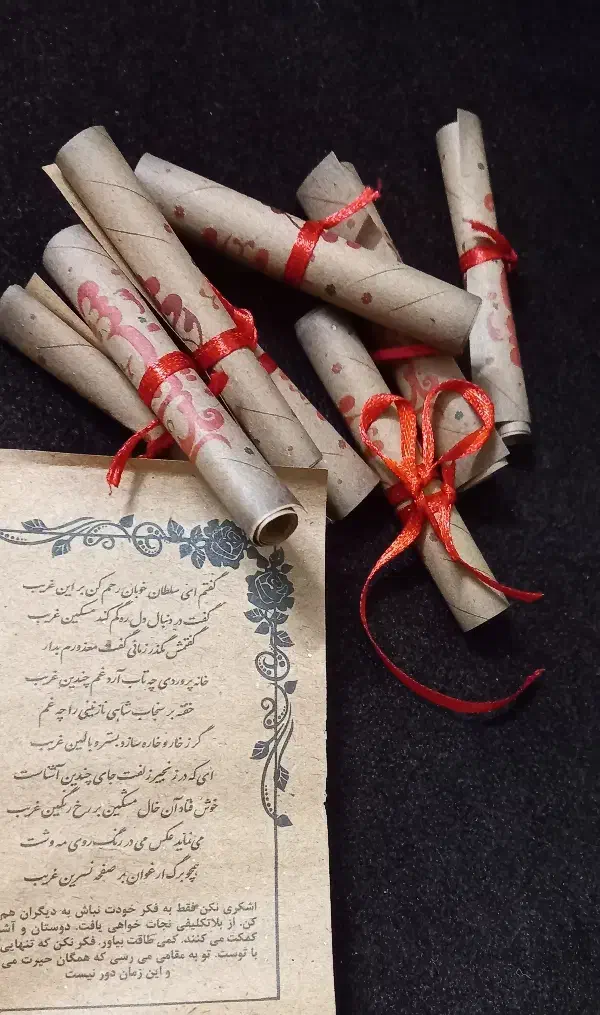 گفتم ای سلطان خوبان رحم کن بر این غریب
گفت در دنبال دل ره گم کند مسکین غریب
گفتمش مگذر زمانی گفت معذورم بدار
خانه پروردی چه تاب آرد غم چندین غریب
خفته بر سنجاب شاهی نازنینی را چه غم
گر ز خار و خاره سازد بستر و بالین غریب
ای که در زنجیر زلفت جای چندین آشناست
خوش فتاد آن خال مشکین بر رخ رنگین غریب
می نماید عکس می در رنگ روی مه وشت
همچو برگ ارغوان بر صفحه نسرین غریب
اشکری نکن فقط به فکر خودت نباش به دیگران هم
کن. از بلاتکلیفی نجات خواهی یافت. دوستان و آشنا
کمکت می کنند. کمی طاقت بیاور. فکر نکن که تنهایی
با توست. تو به مقامی می رسی که همگان حیرت می
و این زمان دور نیست